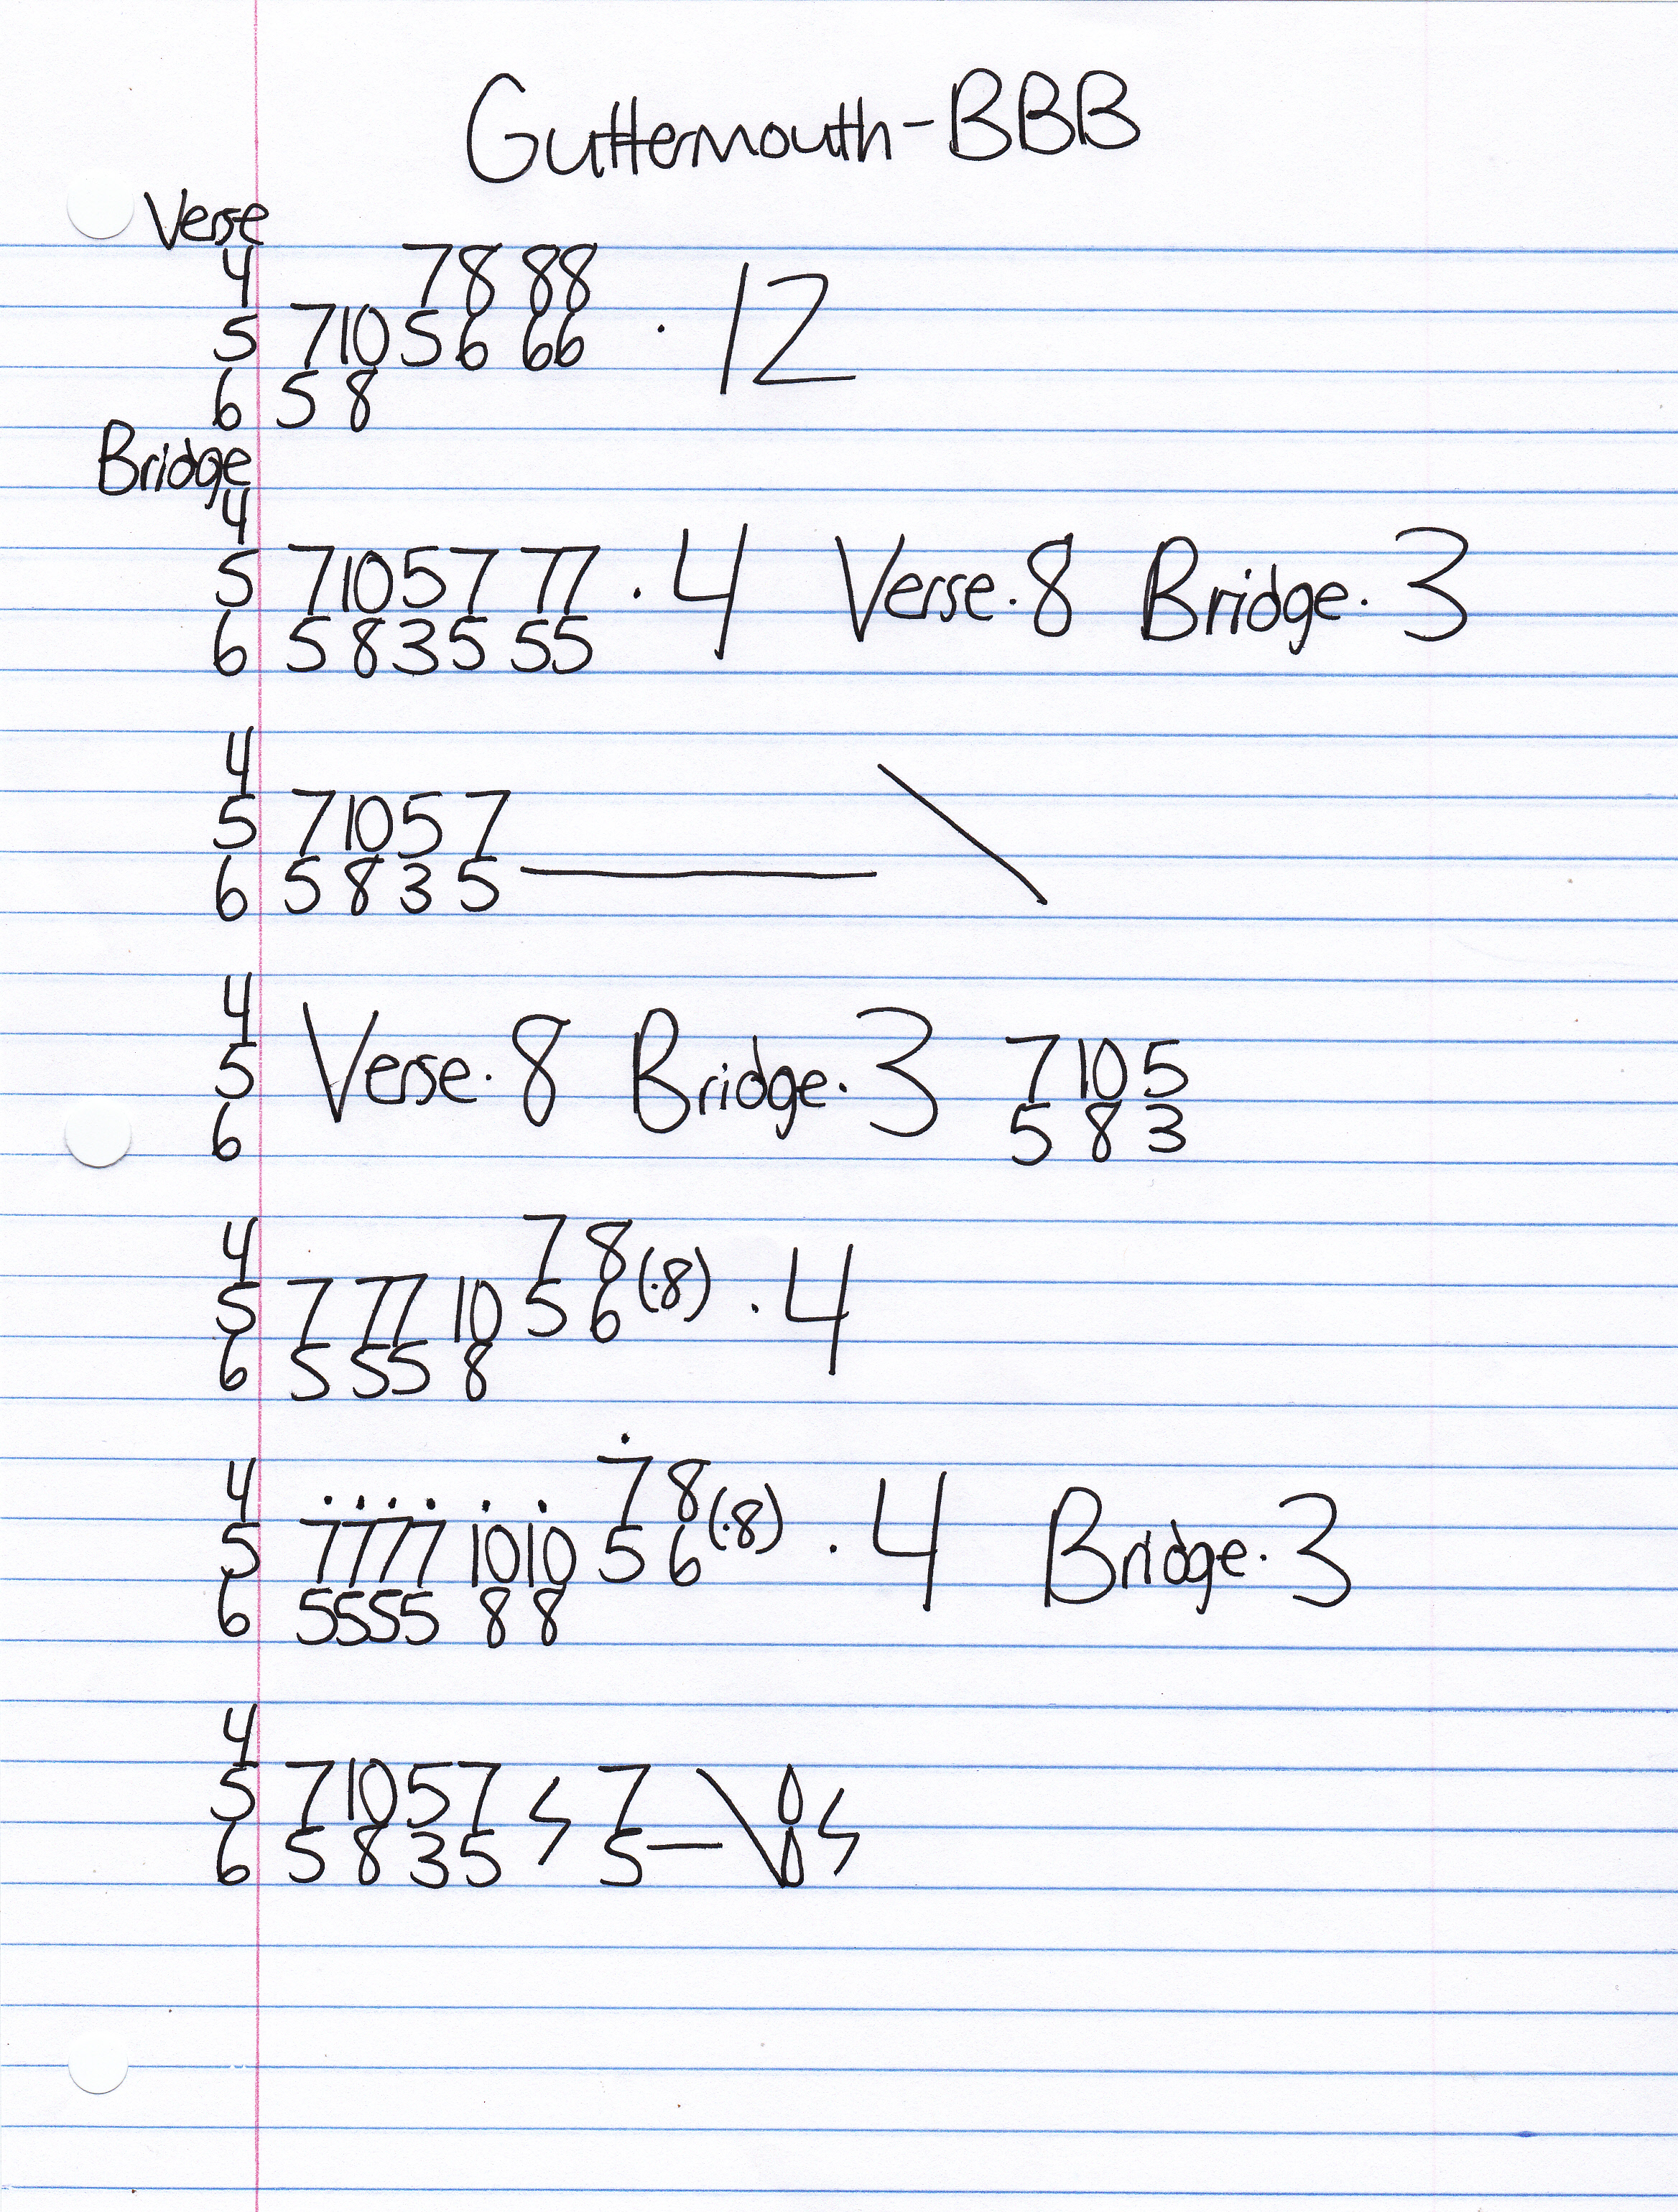 Guttermouth-BBB
Verse
4 78 88
5 7 10 5 6 66 · 12
6 5 8
Bridge
4
5 7 10 5 7 77 · 4 Verse·8 Bridge·3
6 5 8 3 5 55
4
5 7 10 5 7
6 5 8 3 5
4
5 Verse·8 Bridge·3 7 10 5
6 5 8 3
4 7 8
5 7 77 10 5 6 (·8) · 4
6 5 55 8
4 7 8
5 7777 1010 5 6 (·8) · 4 Bridge·3
6 5555 8 8
4
5 7 10 5 7 7
6 5 8 3 5 5